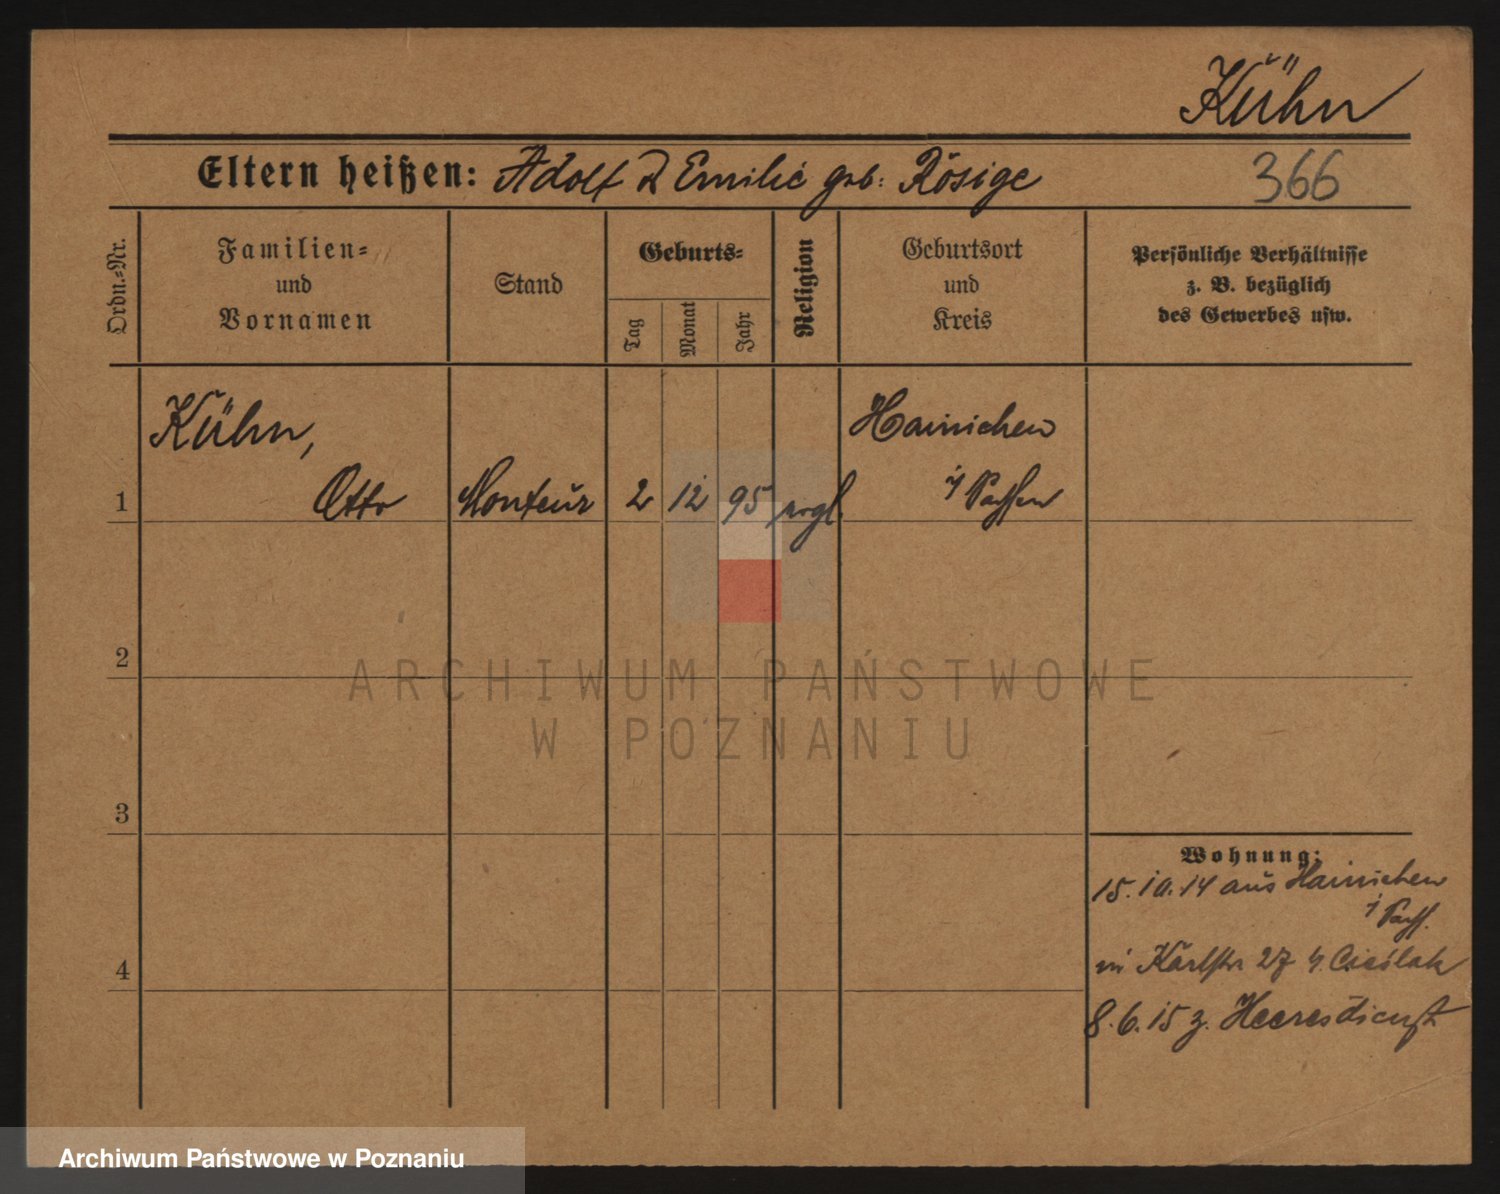 Kühn
Eltern heißen: Adolf & Emilie geb: Rösige
366
Ordn.-Nr.
Familien-
und
Vornamen
Stand
Geburts-
Tag
Monat
Jahr
Religion
Geburtsort
und
Kreis
Persönliche Verhältnisse
z. B. bezüglich
des Gewerbes usw.
Kühn,
Hainichen
1 Otto Monteur 2 12 95 evgl. i/Sachsen
2
ARCHIWUM PAŃSTWOWE
W POZNANIU
3
Wohnung:
15.10.14 aus Hainichen
i/Sachs.
in Karlstr 27 b. Cieślak
4
8.6.15 z. Heeresdienst
Archiwum Państwowe w Poznaniu